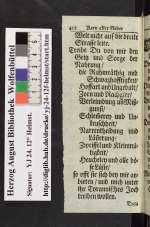 Herzog August Bibliothek Wolfenbüttel
Signatur: YJ 24. 12° Helmst.
http://diglib.hab.de/drucke/yj-24-12f-helmst/start.htm
412 Kern aller Gebet
Welt nicht auf die breite
Strasse leite.
Treibe Du von mir den
Geitz und Sorge der
Nahrung /
die Ruhmräthig und
Schwatzhafftigkeit /
Hoffart und Unart
Zorn und Rachgier /
Verleumdung und
Schlefferey und Un-
keuschheit /
Narrentheidung und
Lästerung /
Zweiffel und Kleinmü-
thigkeit /
Heucheley und alle bö-
se Lüste /
so offt sie sich bey mir an-
bieten / und mich unter
ihr Tyrannisches Joch
treiben wollen.